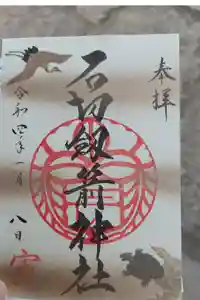 奉拝
石切劔箭神社
令和四年一月
八日